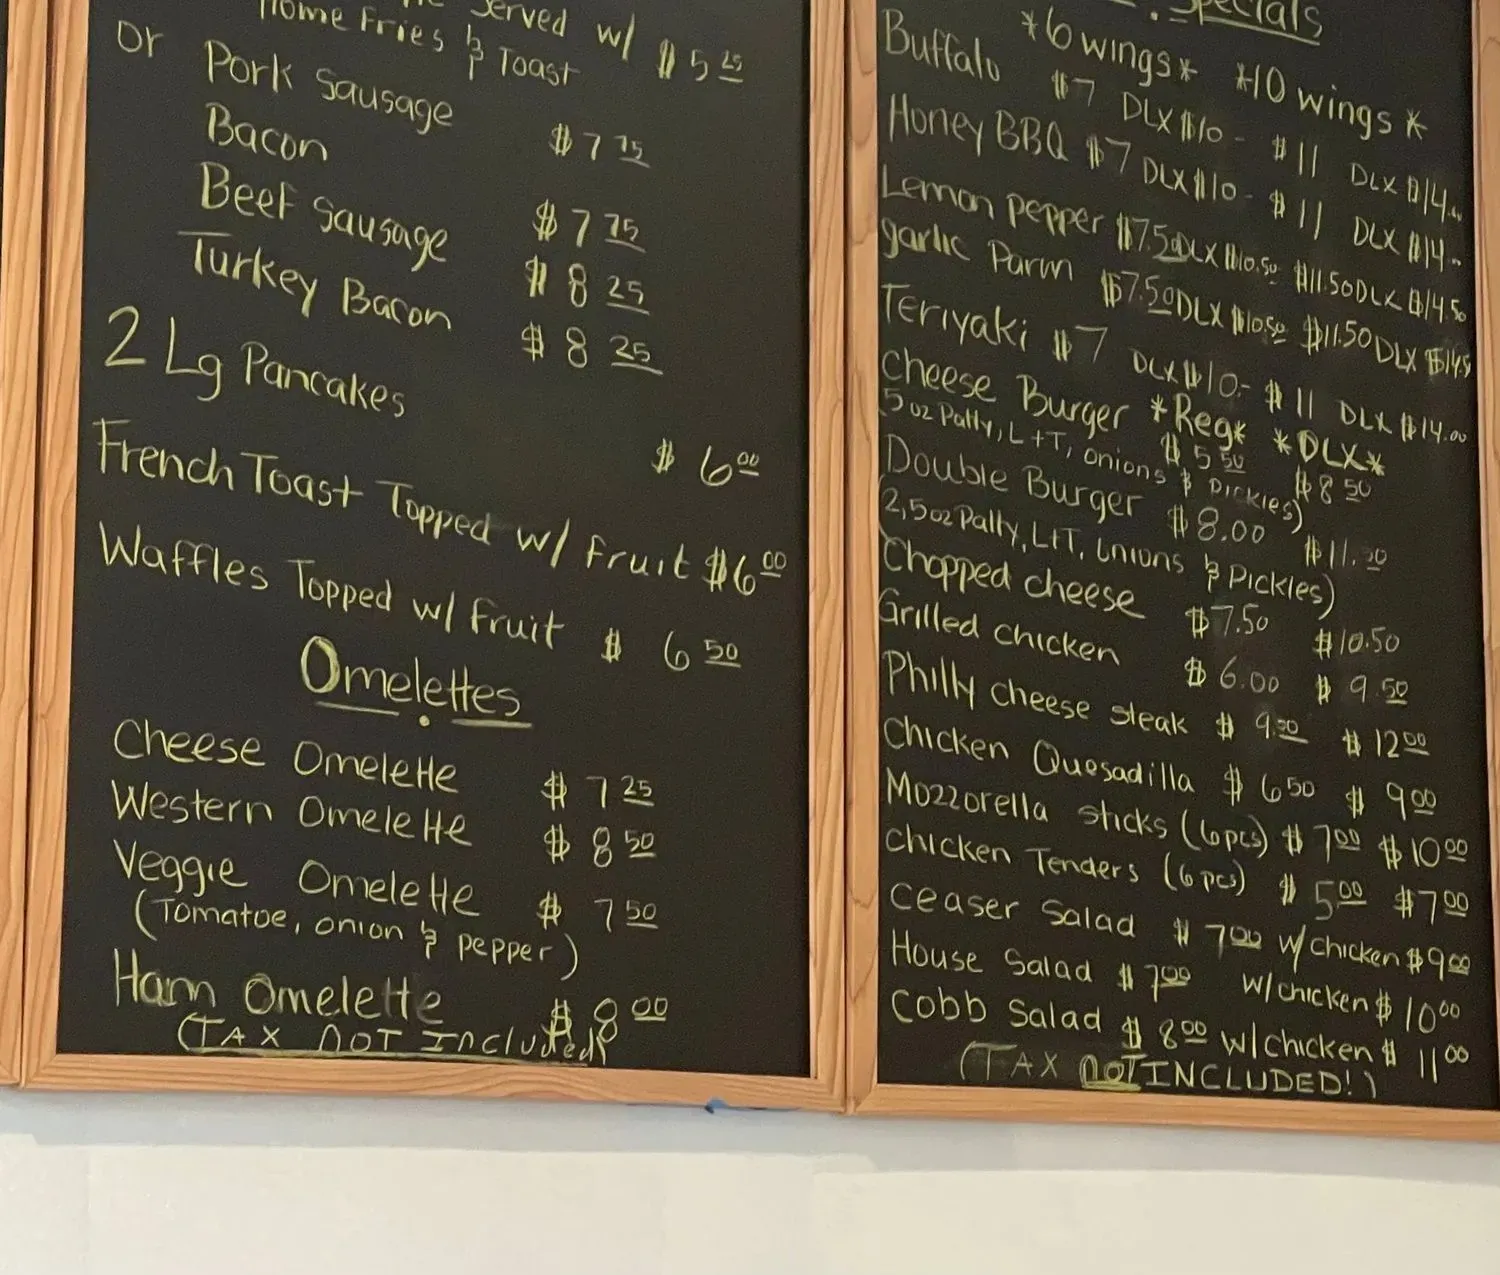 Served w/
Home Fries & Toast $5 25
or Pork Sausage $7 75
Bacon $7 75
Beef Sausage $8 25
Turkey Bacon $8 25
2 Lg Pancakes $6 00
French Toast Topped w/ Fruit $6 00
Waffles Topped w/ Fruit $6 50
Omelettes
Cheese Omelette $7 25
Western Omelette $8 50
Veggie Omelette $7 50
(Tomatoe, onion & pepper)
Ham Omelette $8 00
(TAX NOT Included)
Specials
*6 wings* *10 wings*
Buffalo $7 DLX $10- $11 DLX $14.00
Honey BBQ $7 DLX $10- $11 DLX $14.00
Lemon pepper $7.50 DLX $10.50 $11.50 DLX $14.50
garlic Parm $7.50 DLX $10.50 $11.50 DLX $14.5
Teriyaki $7 DLX $10- $11 DLX $14.00
Cheese Burger *Reg* *DLX*
$5 50 $8 50
5 oz Patty, L+T, onions & Pickles)
Double Burger $8.00 $11.50
(2, 5oz Patty, L+T, onions & Pickles)
Chopped cheese $7.50 $10.50
Grilled chicken $6.00 $9.50
Philly cheese steak $9.00 $12 00
Chicken Quesadilla $6 50 $9 00
Mozzorella sticks (6pcs) $7 00 $10 00
Chicken Tenders (6 pcs) $5 00 $7 00
Ceaser Salad $7 00 w/chicken $9 00
House Salad $7 00 w/chicken $10 00
Cobb Salad $8 00 w/chicken $11 00
(TAX NOT INCLUDED!)